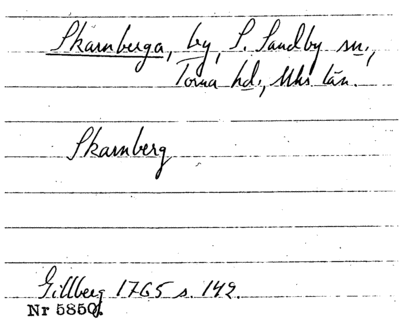 Skarnberga, by, S. Sandby sn.,
Torna hd., Mhs län.
Skarnberg
Gillberg 1765 s. 142.
Nr 5850.